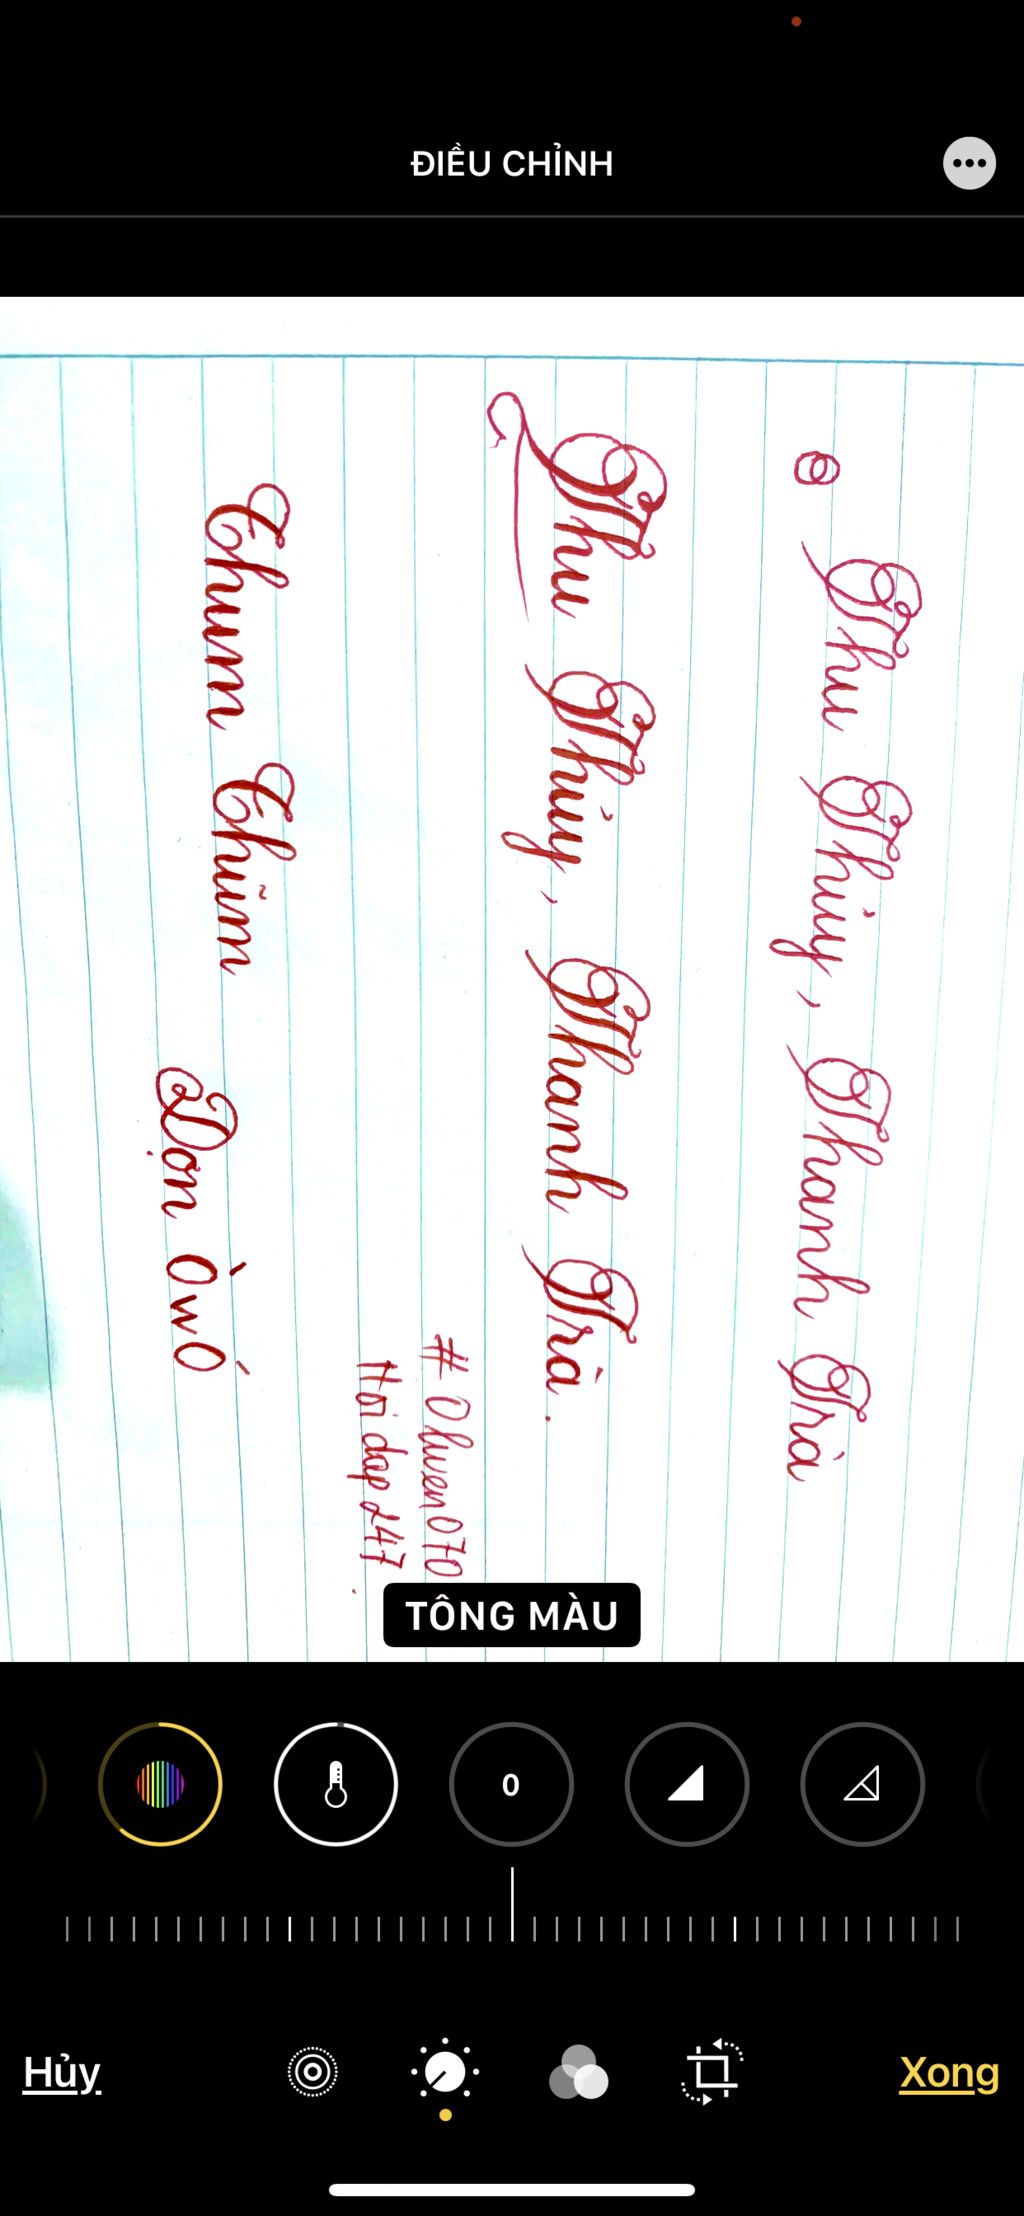 ĐIỀU CHỈNH
Thu Thủy, Thanh Trà
Thu Thủy, Thanh Trà.
#Ohuen070
Hỏi đáp 247.
Thum Thũm Dọn ÒwÓ
TÔNG MÀU
0
Hủy
Xong